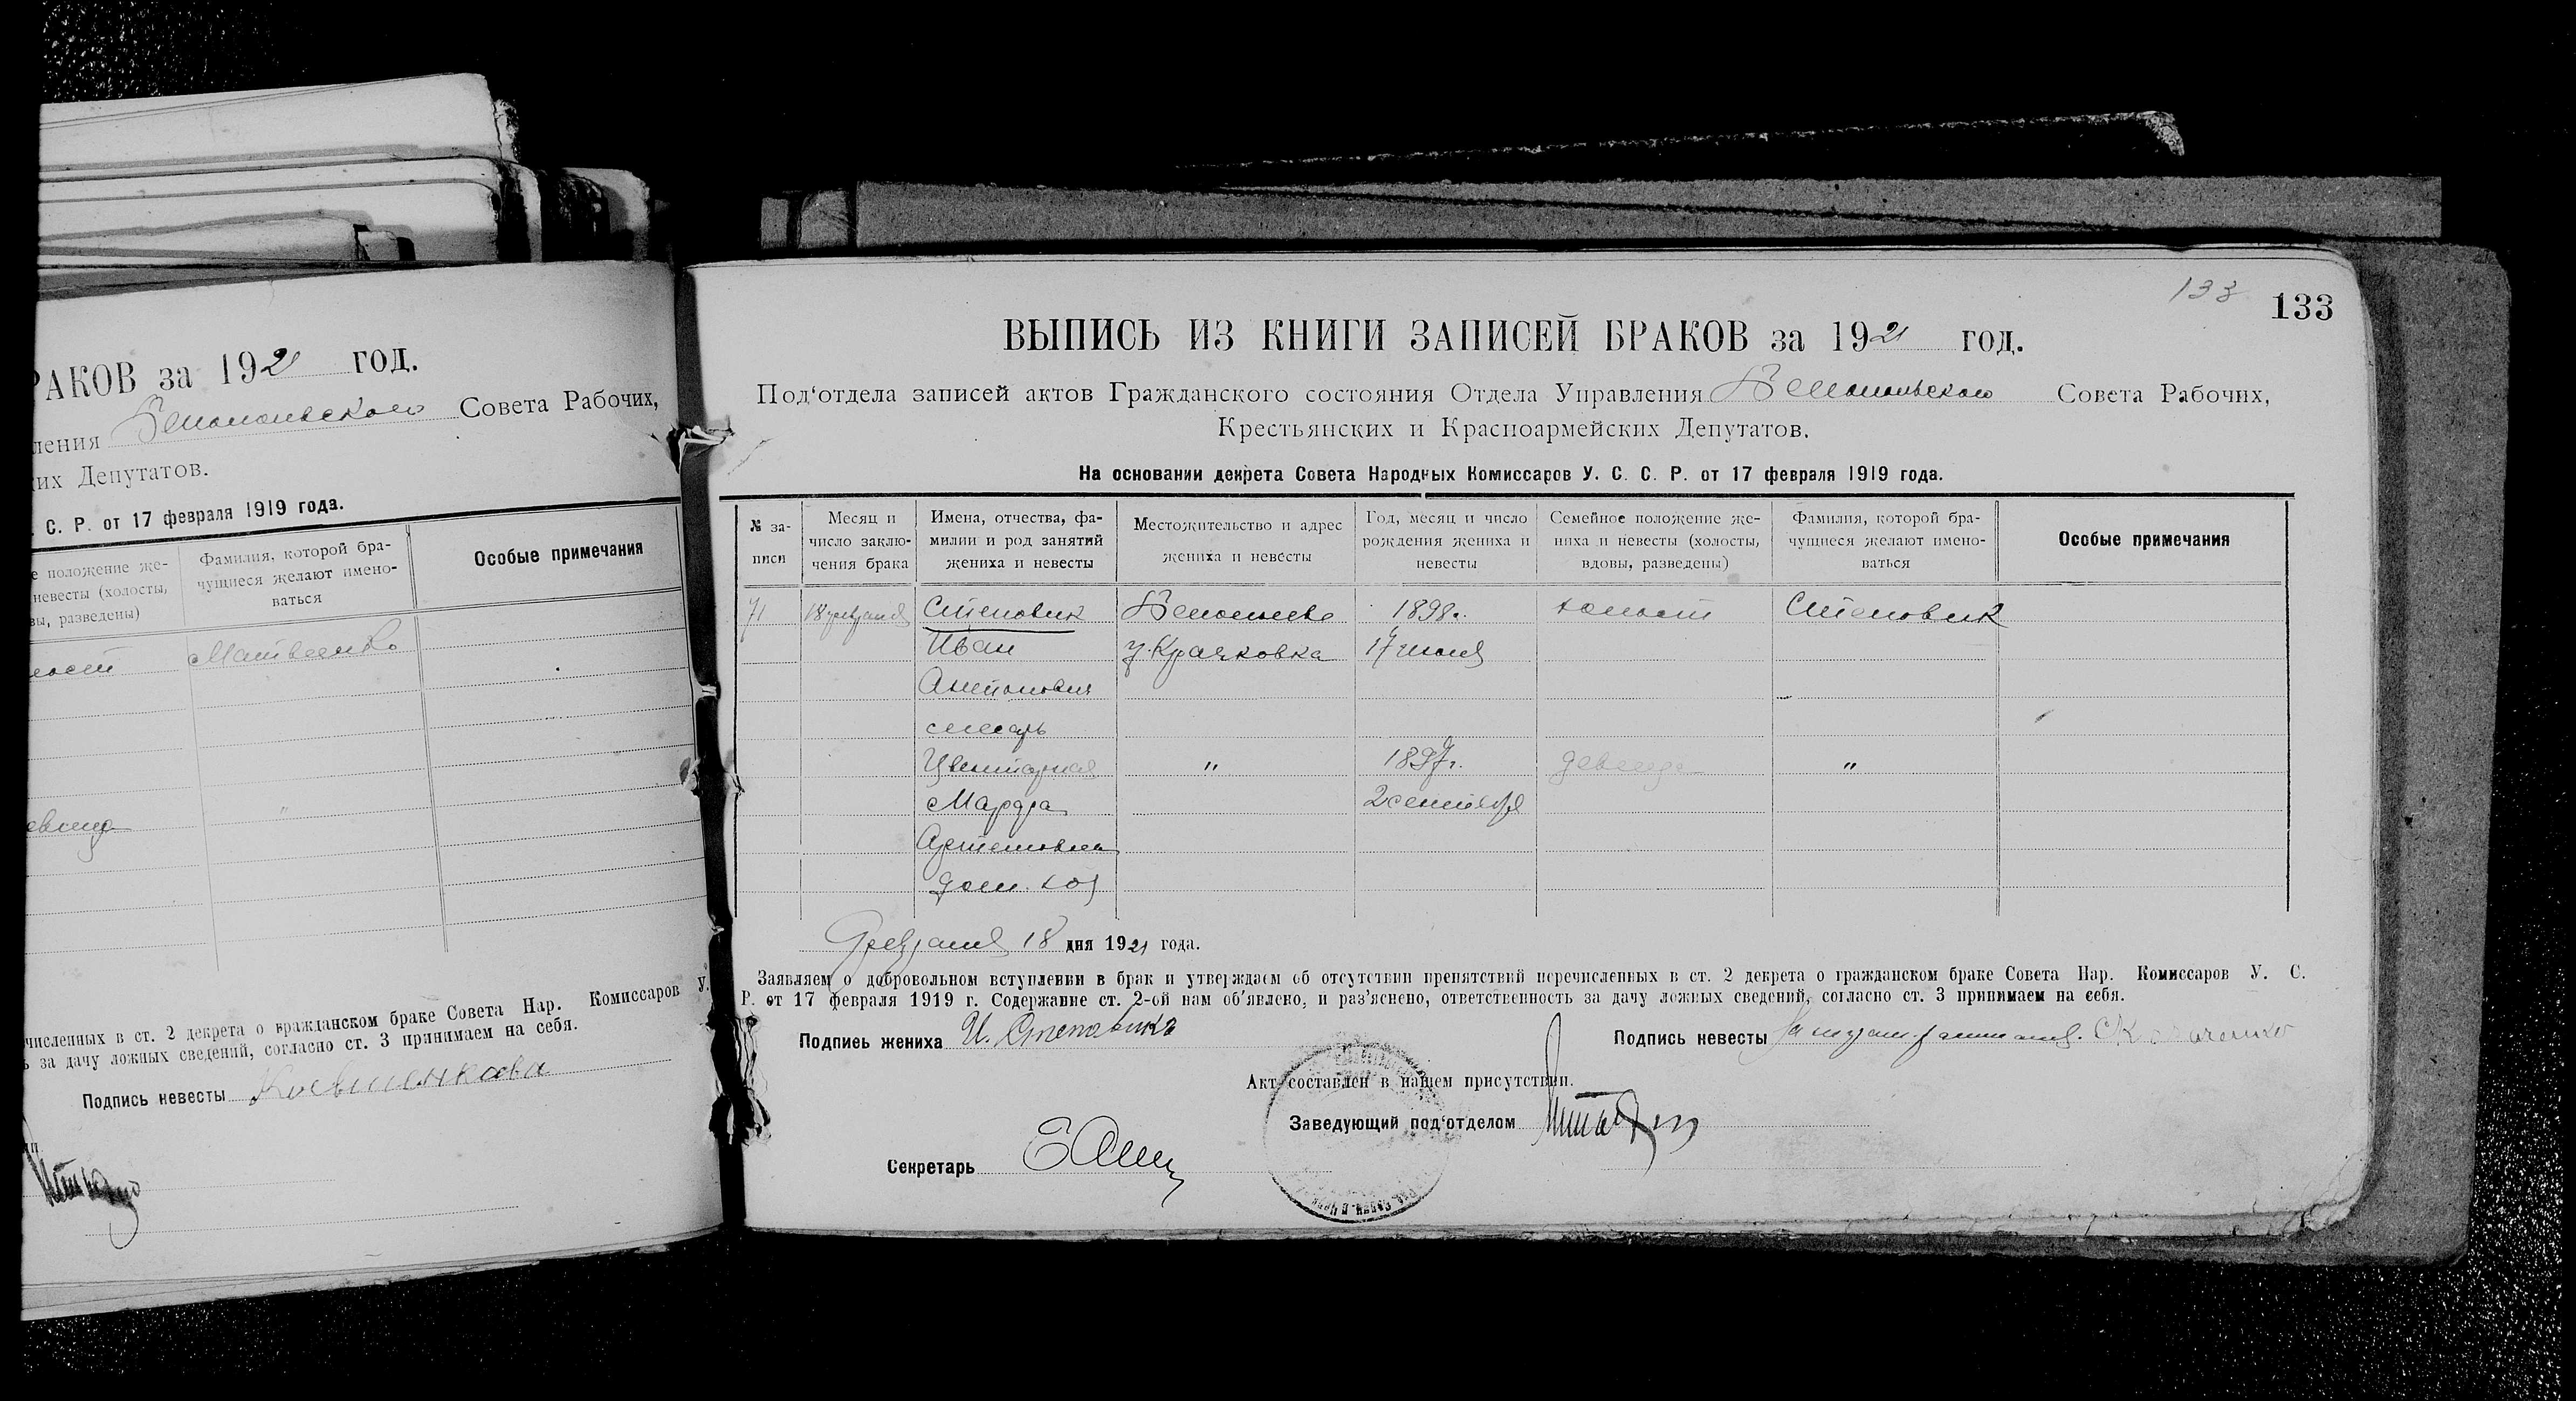 РАКОВ за 1921 год.
ления Белопольского Совета Рабочих,
их Депутатов.
С. Р. от 17 февраля 1919 года.
е положение же-
невесты (холосты,
вы, разведены)
Фамилия, которой бра-
чущиеся желают имено-
ваться
Особые примечания
Матвеенко
евица "
численных в ст. 2 декрета о гражданском браке Совета Нар. Комиссаров У.
за дачу ложных сведений, согласно ст. 3 принимаем на себя.
Подпись невесты
133
133
ВЫПИСЬ ИЗ КНИГИ ЗАПИСЕЙ БРАКОВ за 1921 год.
Под‘отдела записей актов Гражданского состояния Отдела Управления Белопольского Совета Рабочих,
Крестьянских и Красноармейских Депутатов.
На основании декрета Совета Народных Комиссаров У. С. С. Р. от 17 февраля 1919 года.
№ за-
писи
Месяц и
число заклю-
чения брака
Имена, отчества, фа-
милии и род занятий
жениха и невесты
Местожительство и адрес
жениха и невесты
Год, месяц и число
рождения жениха и
невесты
Семейное положение же-
ниха и невесты (холосты,
вдовы, разведены)
Фамилия, которой бра-
чущиеся желают имено-
ваться
Особые примечания
71 18 февраля Степовик Белополье 1898г. холост Степовик
Иван у. Крачковка 17 июля
Антонович
слесарь
Цвентарная " 1897г. девица "
Марфа 2 сентября
Артемовна
дом. хоз
Февраля 18 дня 1921 года.
Заявляем о добровольном вступлении в брак и утверждаем об отсутствии препятствий перечисленных в ст. 2 декрета о гражданском браке Совета Нар. Комиссаров У. С.
Р. от 17 февраля 1919 г. Содержание ст. 2-ой нам об‘явлено, и раз‘яснено, ответственность за дачу ложных сведений, согласно ст. 3 принимаем на себя.
Подпись жениха И. Степовикъ
Подпись невесты За
Акт составлен в нашем присутствии.
Заведующий под‘отделом
Секретарь